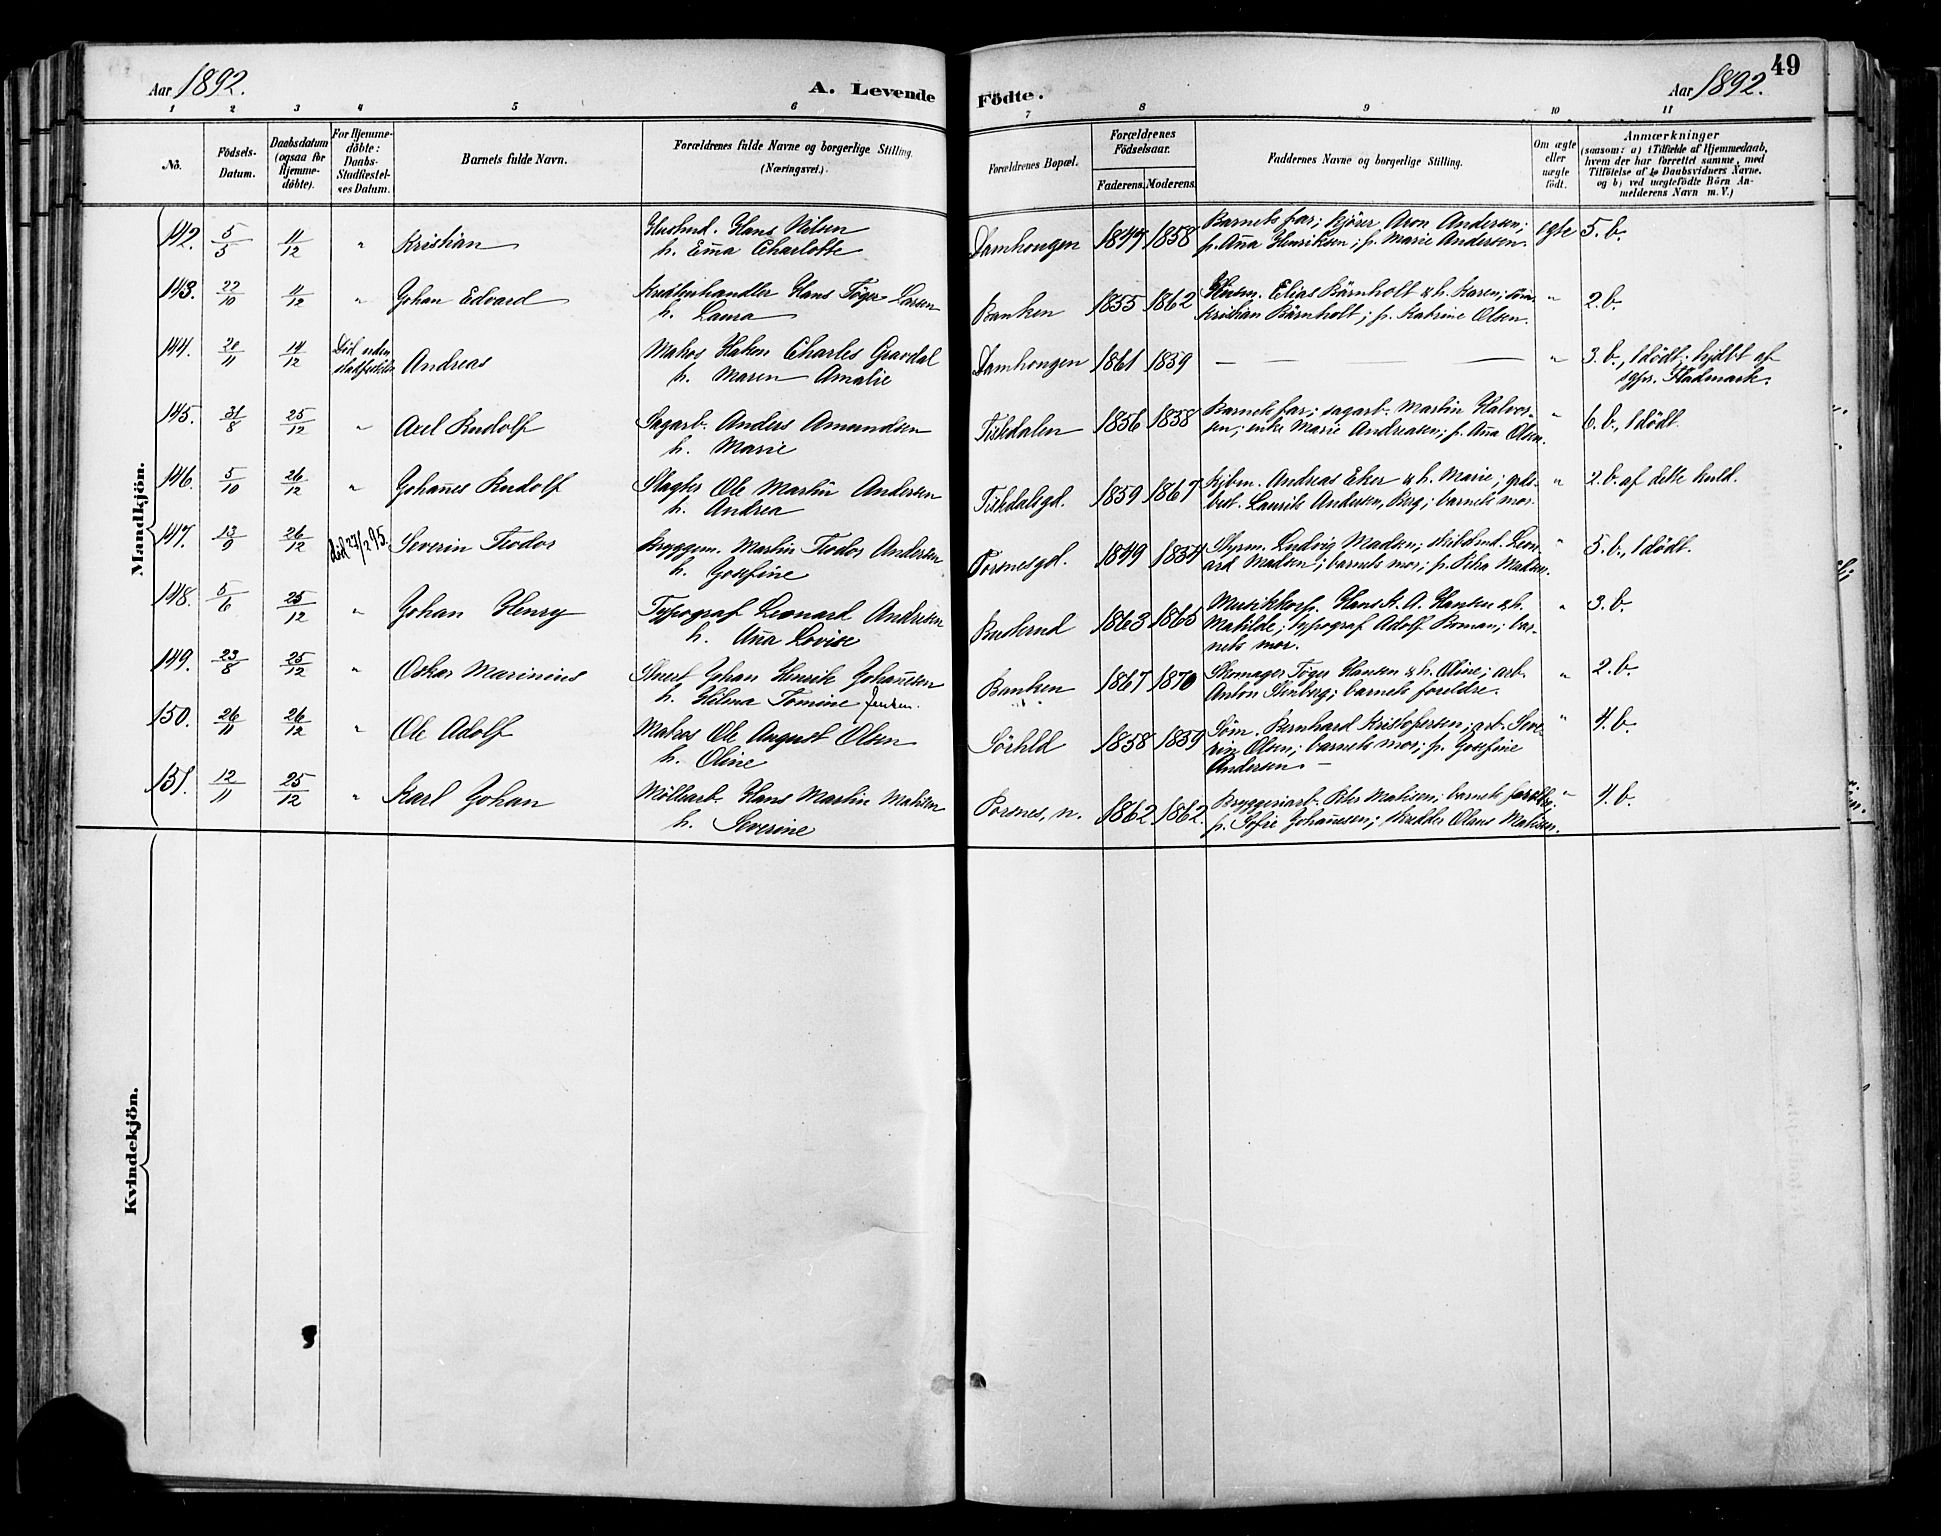 49
Aar 1892.
A. Levende Födte.
Aar 1892.
1 2 3 4 5 6 7 8 9 10 11
No.
Födsels-
Datum.
Daabsdatum
(ogsaa for
Hjemme-
döbte).
For Hjemme-
döbte:
Daabs-
Stadfæstel-
ses Datum.
Barnets fulde Navn.
Forældrenes fulde Navne og borgerlige Stilling.
(Næringsvei.)
Forældrenes Bopæl.
Forældrenes
Födselsaar.
Faderens. Moderens.
Faddernes Navne og borgerlige Stilling.
Om ægte
eller
uægte
födt.
Anmærkninger
(saasom: a) i Tilfælde af Hjemmedaab,
hvem der har forrettet samme, med
Tilföielse af to Daabsvidners Navne.
og b) ved uægtefödte Börn An-
melderens Navn m. V.)
Mandkjön.
142. 5/5 11/12 " Kristian
Husmd. Hans Nilsen
h. Em̄a Charlotte
Damhougen 1847 1858
Barnets far; kjörer Aron Andersen;
p. An̄a Henriksen; p. Marie Andersen.
egte 5. b.
143. 22/10 11/12 " Johan Edvard
Kreaturhandler Hans Töger Larsen
h. Laura
Banken 1855 1862
Husm. Elias Bärnholt & h. Karen;
Kristian Bärnholt; p. Katrine Olsen.
" 2. b.
144. 20/11 14/12 Död uden
stadfestelse
Andreas
Matros Haken Charles Gravdal
h. Maren Amalie
Damhougen 1861 1859
— — —
" 3. b., 1 dödt; hjdbt af
Stadmark.
145. 31/8 25/12 " Axel Rudolf
Sagarb. Anders Amandsen
h. Marie
Tistedalen 1856 1858
Barnets far; sagarb. Martin Halvor-
sen; enke Marie Andreasen; p. An̄a Olsen.
" 6. b., 1 dödt.
146. 5/10 26/12 " Johan̄es Rudolf
Slagter Ole Martin Andersen
h. Andrea
Tistedalsgd. 1859 1867
Kjbm. Andreas Eker & h. Marie; grds-
best. Laurits Andersen, Berg; barnets mor.
" 2. b. af dette kuld.
147. 13/9 26/12 död 27/2 95. Severin Teodor
Bryggem. Martin Teodor Andersen
h. Josefine
Porsnesgd. 1849 1854
Styrm. Ludvig Madsen; Leon-
ard Madsen; barnets mor; p. Petra Madsen.
" 5. b., 1 dödt.
148. 5/6 25/12 " Johan Henry
Typograf Leonard Andersen
h. An̄a Lovise
Buskerud 1863 1865
Musikkorp. Hans A. A. Hansen & h.
Matilde; typograf Adolf Roman; bar-
nets mor.
" 3. b.
149. 23/8 25/12 " Oskar Marinius
Johan Henrik Johan̄esen
h. Hilma Tomine Jensen.
Banken 1867 1870
Skomager Töger Hansen & h. Oline; arb.
Anton Stenberg; barnets foreldre.
" 2. b.
150. 26/11 26/12 " Ole Adolf
Matros Ole August Olsen
h. Oline
Sörhld 1858 1859
Söm. Bernhard Kristofersen; arb. Seve-
rin Olsen; barnets mor; p. Josefine
Andersen. —
" 4. b.
151. 12/11 25/12 " Karl Johan
Möllearb. Hans Martin Matisen
h. Severine
Porsnes, n. 1862 1862.
Bryggeriarb. Peter Matisen; barnets foreldre;
p. Sofie Johan̄esen; skredder Olaus Matisen.
" 4. b.
Kvindekjön.